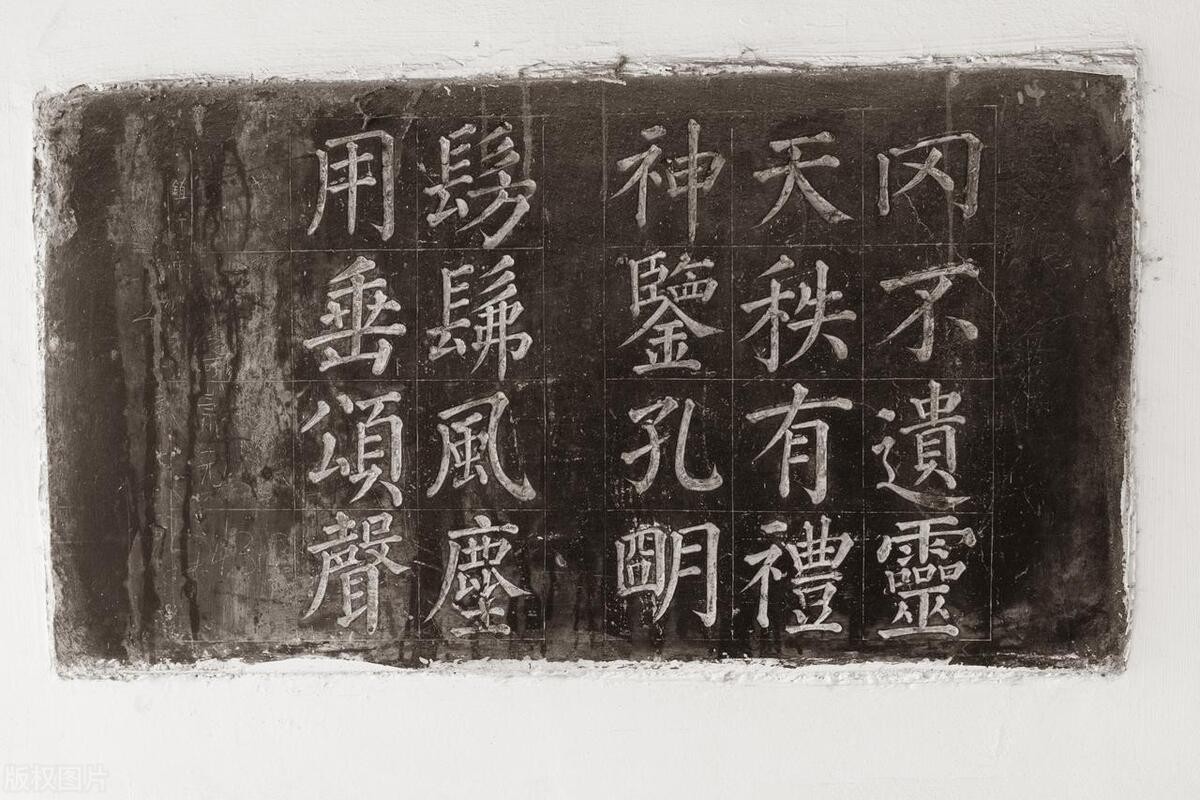 罔不遺靈
天秩有禮
神鑒孔明
髣髴風塵
用垂頌聲
版权图片